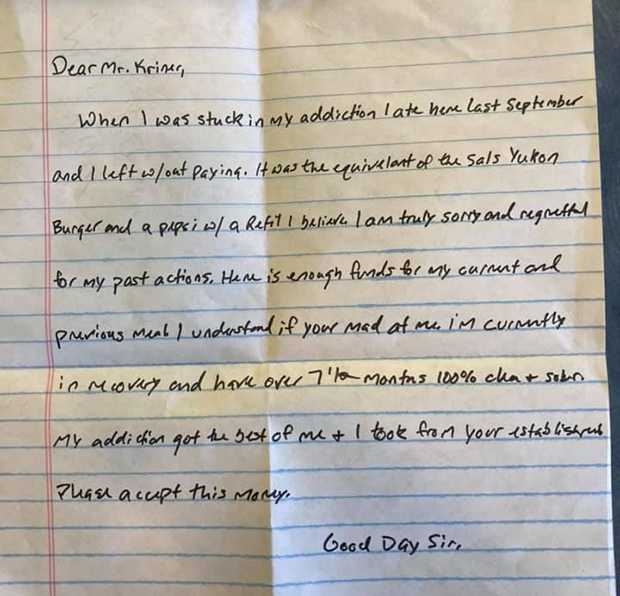 Dear Mr. Kriner,
When I was stuck in my addiction I ate here last September
and I left w/out paying. It was the equivelant of the Sals Yukon
Burger and a pepsi w/ a Refil I believe. I am truly sorry and regretful
for my past actions. Here is enough funds for my current and
previous meal. I understand if your mad at me. I'm currently
in recovery and have over 7 1/2 months 100% clean + sober.
My addiction got the best of me + I took from your establishment
Please accept this money.
Good Day Sir,